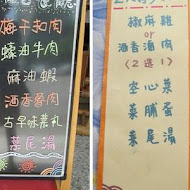 梅干扣肉
蠔油牛肉
麻油蝦
酒香醬肉
古早味蒸丸
菜尾湯
椒麻雞
or
酒香滷肉
(2選1)
空心菜
菜脯蛋
菜尾湯